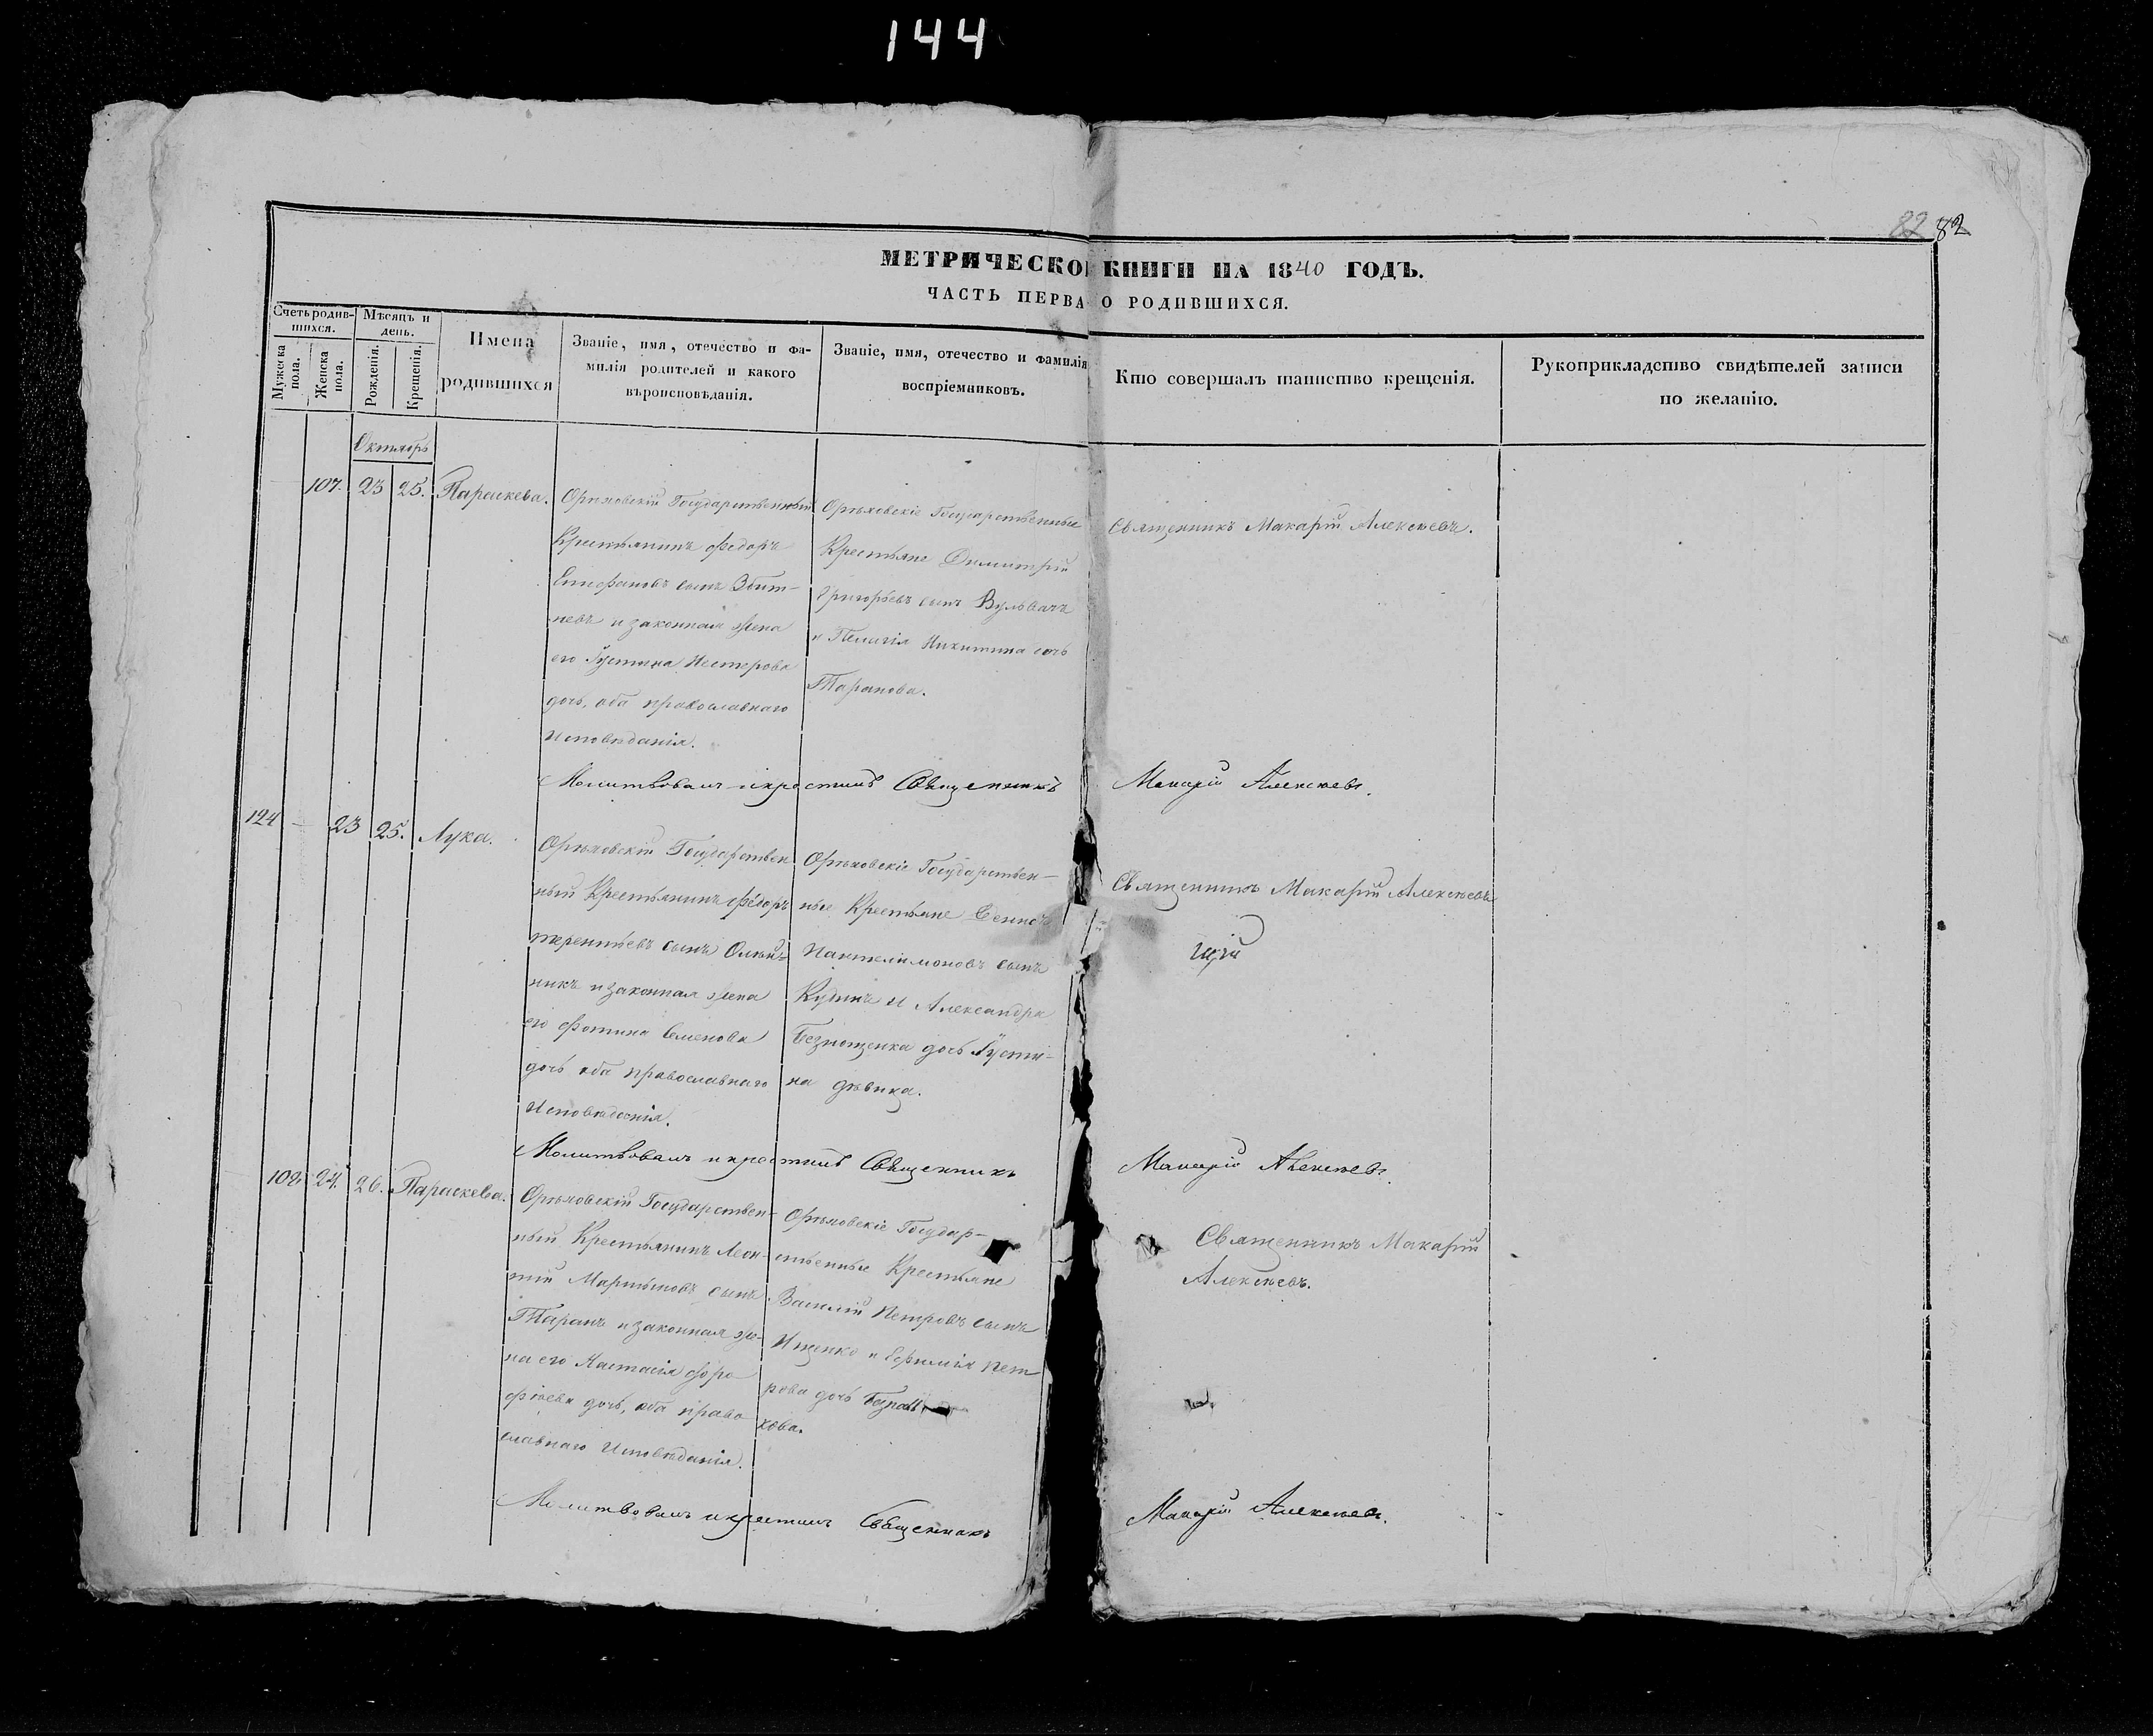 144
82 82
МЕТРИЧЕСКОЙ КНИГИ НА 1840 ГОДЪ.
ЧАСТЬ ПЕРВА О РОДИВШИХСЯ.
Счетъ родив-
шихся.
Мѣсяцъ и
день.
Мужеска
пола.
Женска
пола.
Рожденія.
Крещенія.
Имена
родившихся
Званіе, имя, отечество и фа-
милія родителей и какого
вѣроисповѣданія.
Званіе, имя, отечество и фамилія
воспріемниковъ.
Кто совершалъ таинство крещенія.
Рукоприкладство свидѣтелей записи
по желанію.
Октябрь
107. 23 25. Параскева.
Орѣховскій Государственный
Крестьянинъ Федоръ
Епифановъ сынъ Збит-
невъ и законная жена
его Густина Нестерова
дочь, оба православнаго
Исповѣданія.
Орѣховскіе Государственные
Крестьяне Димитрій
Григорьевъ сынъ
и Пелагія Никитина дочь
Таранова.
Священникъ Макарій Алексѣевъ.
Молитвовалъ и крестилъ Священникъ Макарій Алексѣевъ.
124 23 25. Лука.
Орѣховскій Государствен
ный Крестьянинъ Федоръ
терентьевъ сынъ Олѣй-
никъ и законная жена
его Фотина Семенова
дочь оба православнаго
Исповѣданія.
Орѣховскіе Государствен-
ные Крестьяне
Пантелимоновъ сынъ
Кудинъ и Александра
дочь Густи-
на дѣвица.
Священникъ Макарій Алексѣевъ
Молитвовалъ и крестилъ Священникъ Макарій Алексѣевъ.
108. 24. 26. Параскева.
Орѣховскій Государствен-
ный Крестьянинъ Леон-
тій Мартыновъ сынъ
Таранъ и законная же-
на его Настасія Доро
фѣева дочь, оба право
славнаго Исповѣданія.
Орѣховскіе Государ-
ственные Крестьяне
Василій Петровъ сынъ
Ищенко и Ефимія Пет
рова дочь
хова.
Священникъ Макарій
Алексѣевъ.
Молитвовалъ и крестилъ Священникъ Макарій Алексѣевъ.